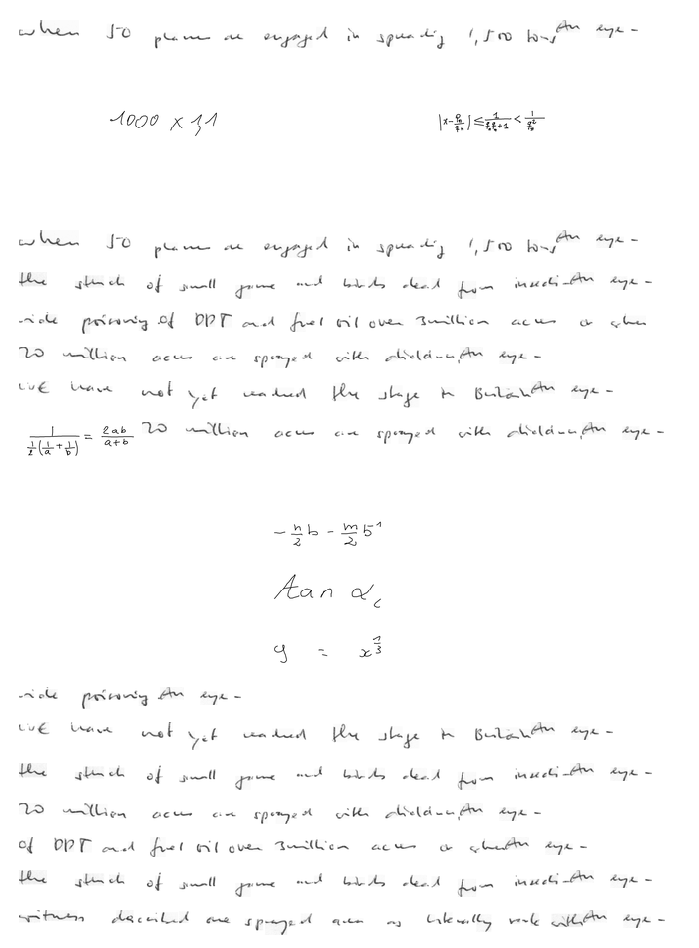 when 50 planes are engaged in spreading 1,500 tons An eye-
1000 x 1,1
|x-\frac{p_n}{q_n}| \leq \frac{1}{q_n q_{n+1}} < \frac{1}{q_n^2}
when 50 planes are engaged in spreading 1,500 tons An eye-
the stench of small game and birds dead from insecti- An eye-
-cide poisoning of DDT and fuel oil over 3 million acres or when
20 million acres are sprayed with dieldrin, An eye-
WE have not yet reached the stage in Britain An eye-
\frac{1}{\frac{1}{2}(\frac{1}{a}+\frac{1}{b})} = \frac{2ab}{a+b} 20 million acres are sprayed with dieldrin, An eye-
-\frac{n}{2}b-\frac{m}{2}b^1
tan α_c
y = x^{\frac{1}{3}}
-cide poisoning An eye-
WE have not yet reached the stage in Britain An eye-
the stench of small game and birds dead from insecti- An eye-
20 million acres are sprayed with dieldrin, An eye-
of DDT and fuel oil over 3 million acres or when An eye-
the stench of small game and birds dead from insecti- An eye-
witness described one sprayed area as literally reek with An eye-